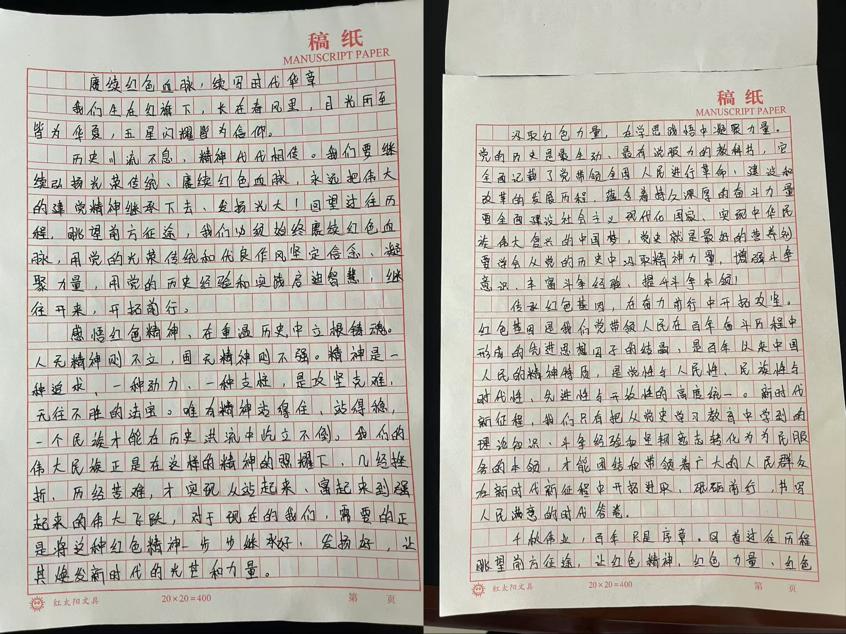 稿纸
MANUSCRIPT PAPER
赓续红色血脉,续写时代华章
我们生在红旗下,长在春风里,目光所至
皆为华夏,五星闪耀皆为信仰。
历史川流不息,精神代代相传。我们要继
续弘扬光荣传统、赓续红色血脉,永远把伟大
的建党精神继承下去、发扬光大!回望过往历
程,眺望前方征途,我们必须始终赓续红色血
脉,用党的光荣传统和优良作风坚定信念、凝
聚力量,用党的历史经验和实践启迪智慧,继
往开来,开拓前行。
感悟红色精神、在重温历史中立根铸魂。
人无精神则不立,国无精神则不强。精神是一
种追求、一种动力、一种支柱,是攻坚克难,
无往不胜的法宝。唯有精神站得住、站得稳,
一个民族才能在历史洪流中屹立不倒。我们的
伟大民族正是在这样的精神的照耀下,几经挫
折、历经苦难,才实现从站起来、富起来到强
起来的伟大飞跃,对于现在的我们,需要的正
是将这种红色精神一步步继承好、发扬好,让
其焕发新时代的光芒和力量。
红太阳文具
20×20=400
第 页
稿纸
MANUSCRIPT PAPER
汲取红色力量,在学思践悟中凝聚力量。
党的历史是最生动、最有说服力的教科书,它
全面记载了党带领全国人民进行革命、建设和
改革的发展历程,蕴含着持久深厚的奋斗力量
要全面建设社会主义现代化国家、实现中华民
族伟大复兴的中国梦,党史就是最好的营养剂
要学会从党的历史中汲取精神力量,增强斗争
意识、丰富斗争经验、提升斗争本领!
传承红色基因,在奋力前行中开拓攻坚。
红色基因是我们党带领人民在百年奋斗历程中
形成的先进思想因子的结晶,是百年以来中国
人民的精神特质,是党性与人民性、民族性与
时代性、先进性与开放性的高度统一。新时代
新征程,我们只有把从党史学习教育中学到的
理论知识、斗争经验和坚韧意志转化为为民服
务的本领,才能团结和带领着广大的人民群众
在新时代新征程中开拓进取、砥砺前行,书写
人民满意的时代答卷。
千秋伟业,百年只是序章。回首过往历程
眺望前方征途,让红色精神,红色力量、红色
红太阳文具
20×20=400
第 页